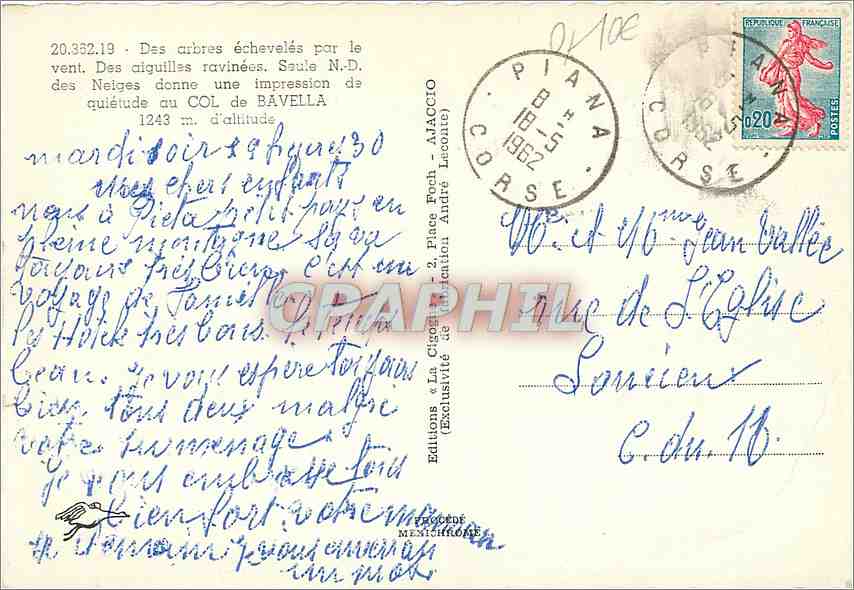 20.362.19 - Des arbres échevelés par le
vent. Des aiguilles ravinées. Seule N.-D.
des Neiges donne une impression de
quiétude au COL de BAVELLA
1243 m. d'altitude
mardi soir 19 heures 30
mes chers enfants
nous à Pieta petit pays en
pleine montagne sa va
toujours très bien c'est un
voyage de
les Hotels tres bons. le temps
beau. je vous espere toujours
bien tous deux malgre
votre
je vous embrasse tous
bien fort. votre maman
demain je vous enverrai
un mot
PROCÉDÉ
MEXICHROME
Editions « La Cigogne » - 2, Place Foch - AJACCIO
(Exclusivité de fabrication André Leconte)
CPAPHIL
10€
PIANA
8 H
18-5
1962
CORSE
PIANA
18-5
1962
CORSE
REPUBLIQUE FRANÇAISE
0,20
POSTES
Mr et Mme Jean Vallée
rue de l'Eglise
C. du N.